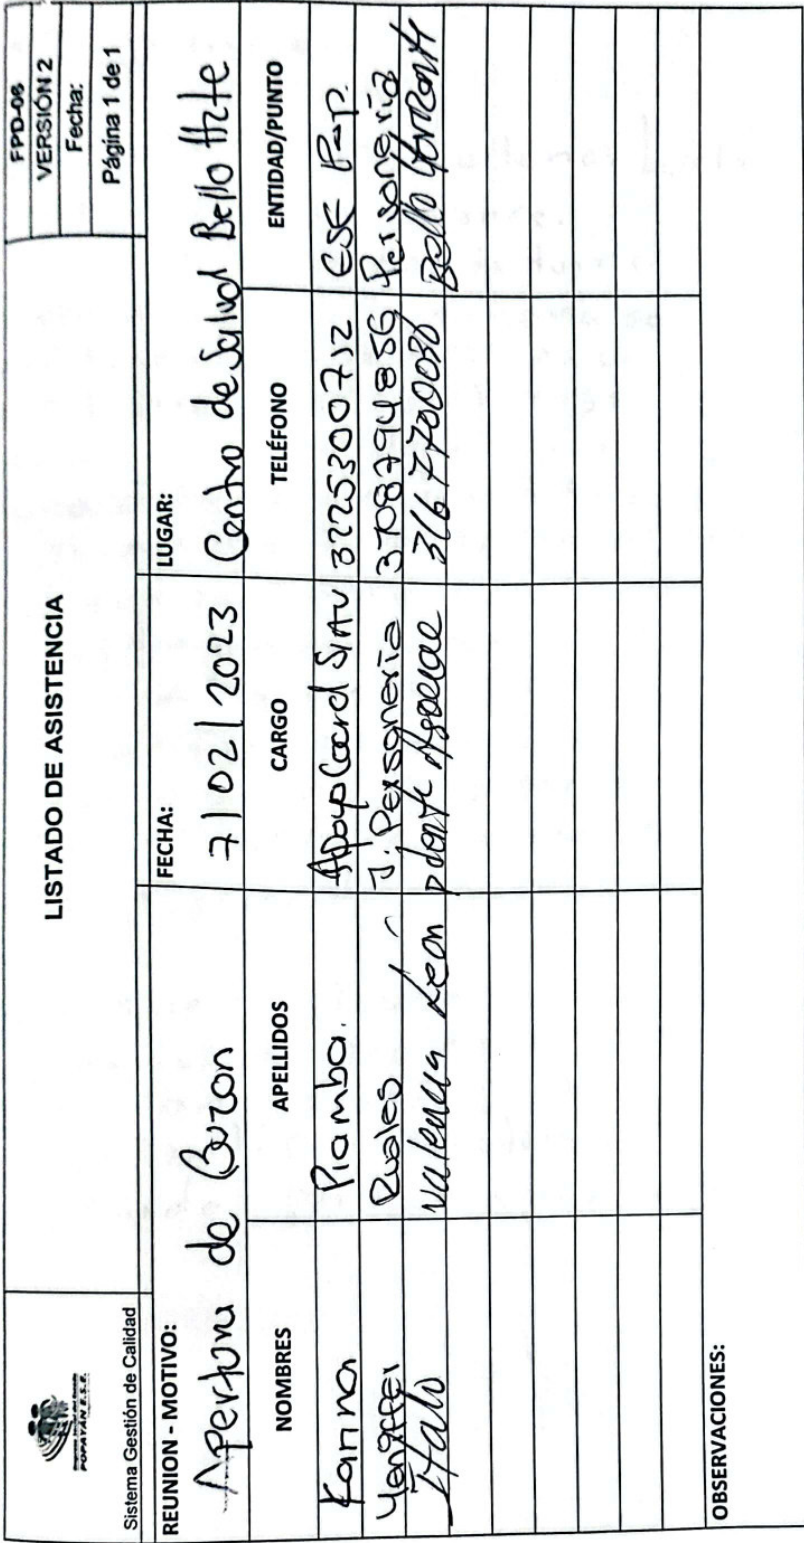 POPAYÁN E.S.E.
Sistema Gestión de Calidad
LISTADO DE ASISTENCIA
FPD-06
VERSIÓN 2
Fecha:
Página 1 de 1
REUNION - MOTIVO:
Apertura de Buzon
FECHA:
7/02/2023
LUGAR:
Centro de Salud Bello Hzte
NOMBRES APELLIDOS CARGO TELÉFONO ENTIDAD/PUNTO
Karina Piamba. Apoyo Coord SIAU 3225300712 ESE Pop.
Ruales J. Personeria 3708794856 Personeria
Italo Valencia Leon Pdente 3167700080 Bello Horizonte
OBSERVACIONES: